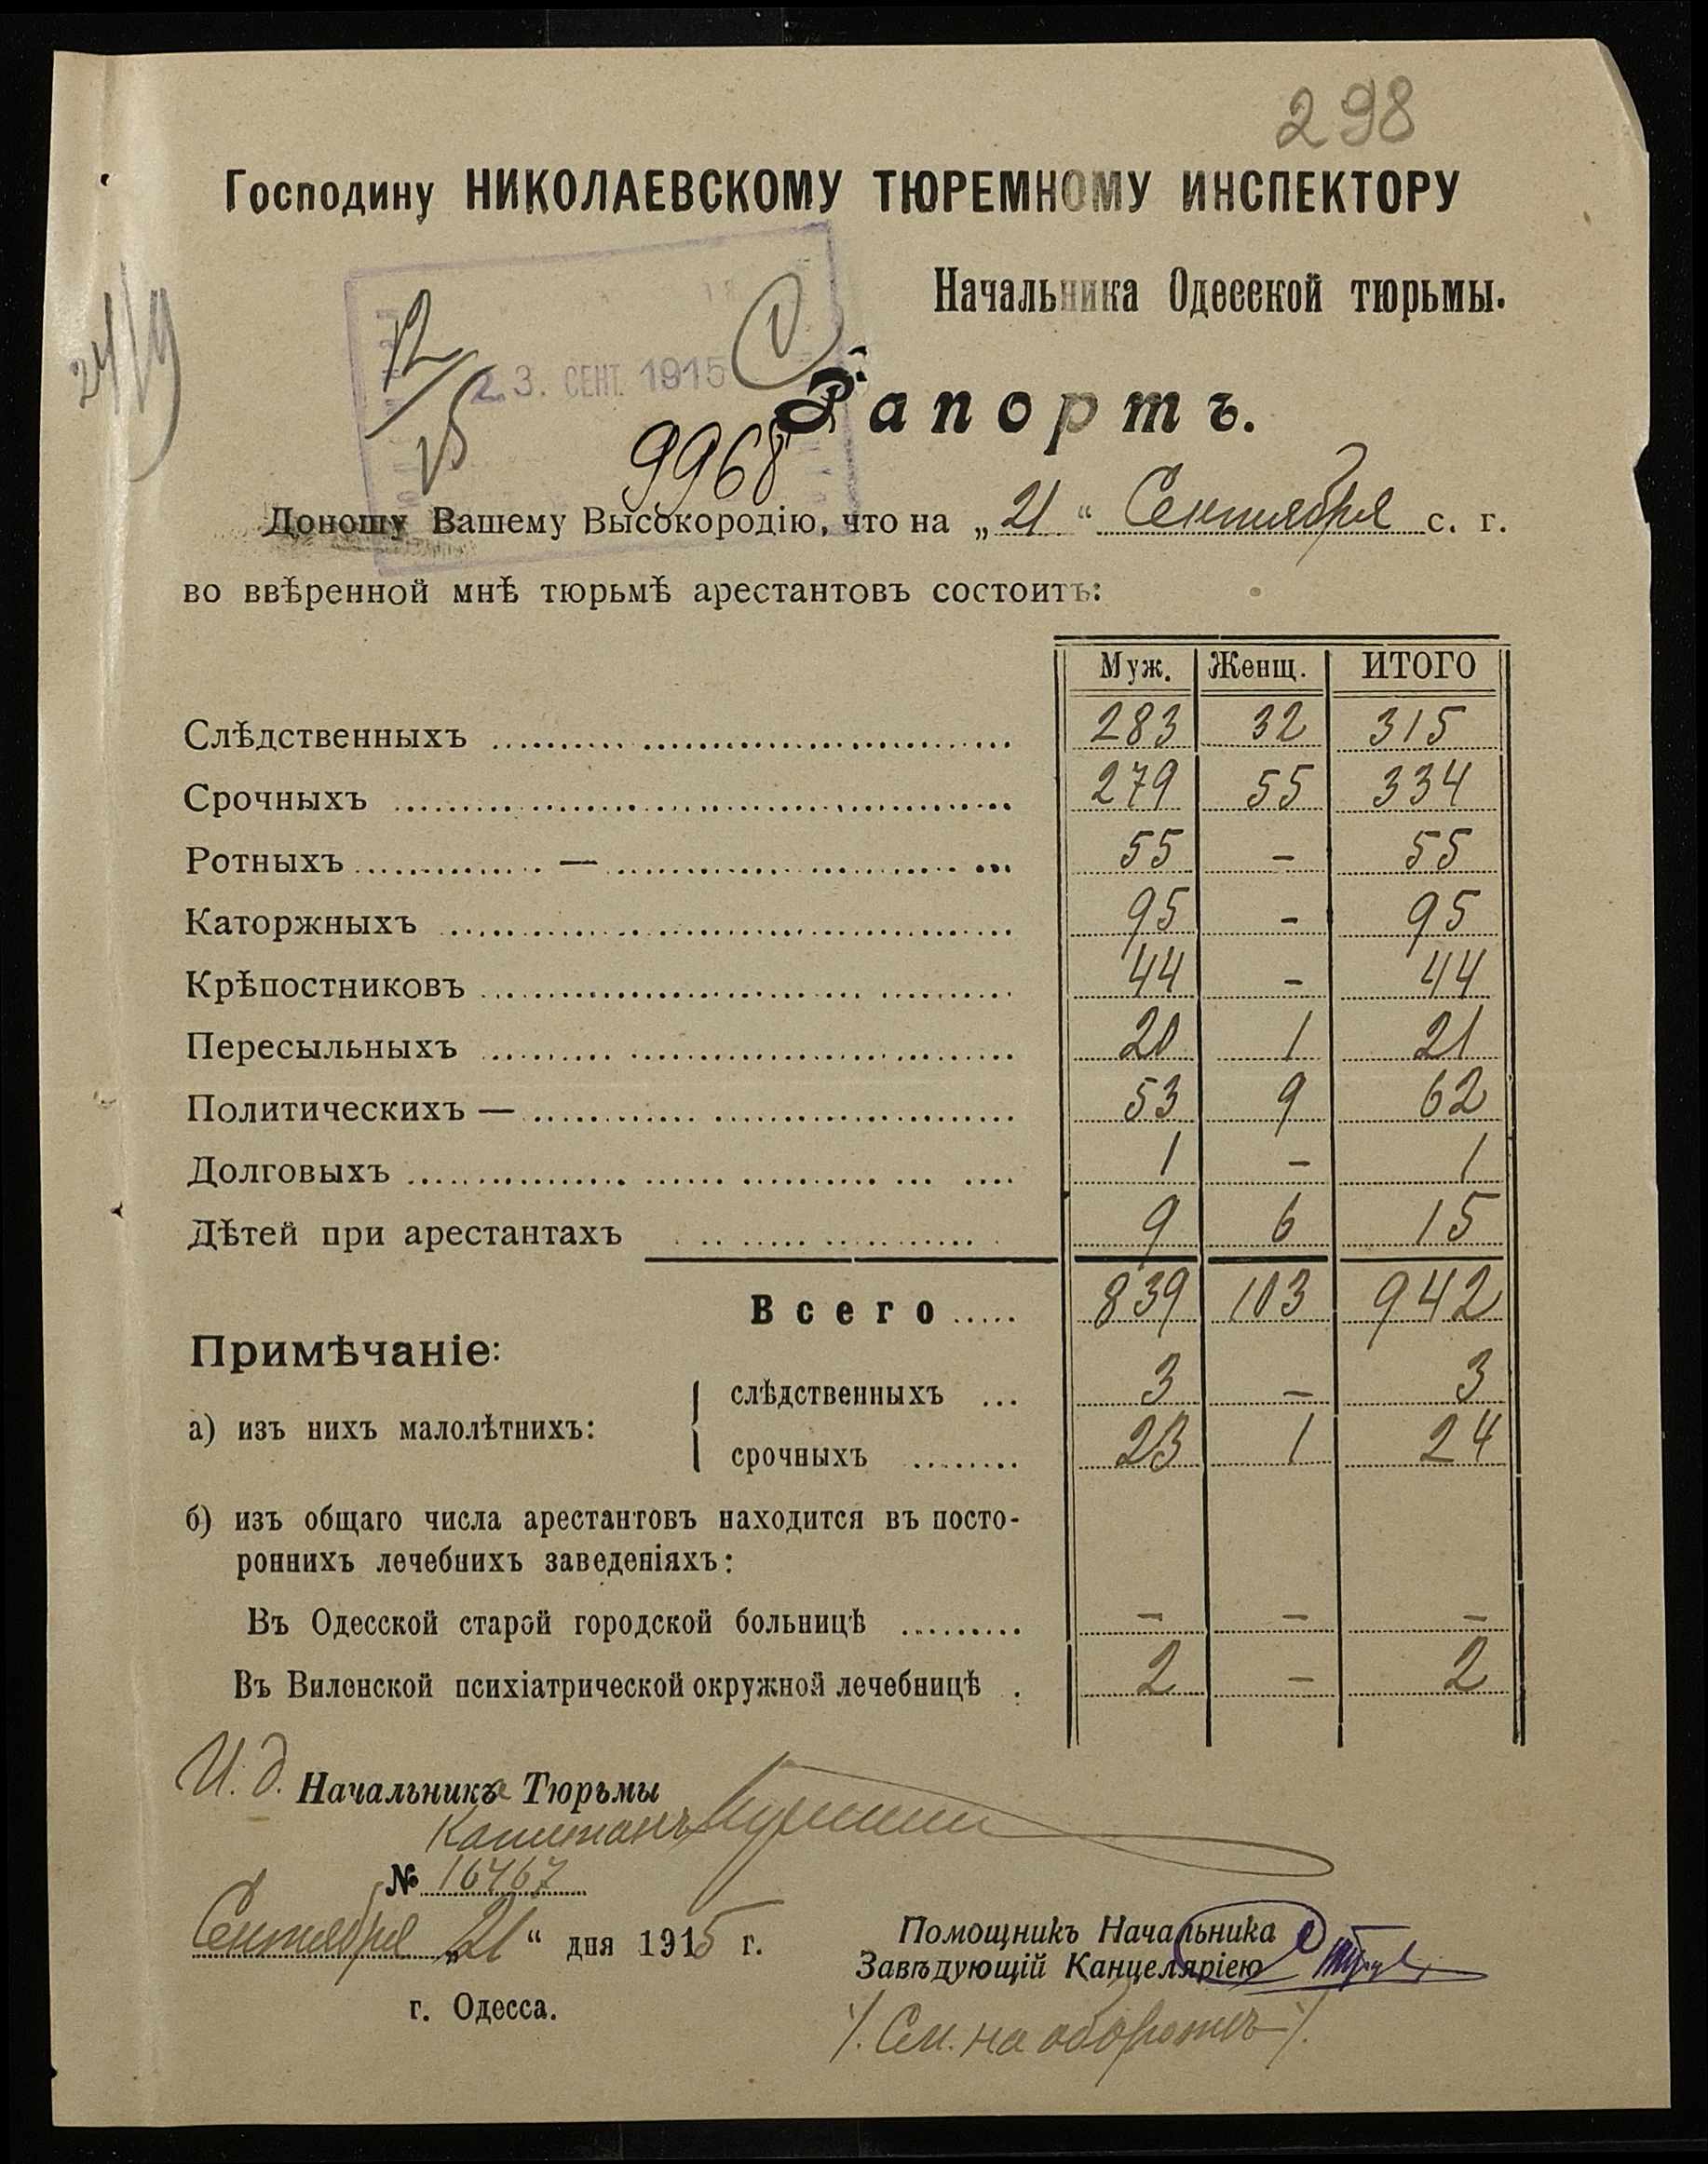 298
Господину НИКОЛАЕВСКОМУ ТЮРЕМНОМУ ИНСПЕКТОРУ
Начальника Одесской тюрьмы.
24/9
23. СЕНТ. 1915
Рапортъ.
9968
Доношу Вашему Высокородію, что на „21“ Сентября с. г.
во ввѣренной мнѣ тюрьмѣ арестантовъ состоитъ:
Муж. Женщ. ИТОГО
Слѣдственныхъ 283 32 315
Срочныхъ 279 55 334
Ротныхъ — 55 - 55
Каторжныхъ 95 - 95
Крѣпостниковъ 44 - 44
Пересыльныхъ 20 1 21
Политическихъ — 53 9 62
Долговыхъ 1 - 1
Дѣтей при арестантахъ 9 6 15
Всего 839 103 942
Примѣчаніе:
а) изъ нихъ малолѣтнихъ:
слѣдственныхъ 3 - 3
срочныхъ 23 1 24
б) изъ общаго числа арестантовъ находится въ посто-
роннихъ лечебнихъ заведеніяхъ:
Въ Одесской старой городской больницѣ - - -
Въ Виленской психіатрической окружной лечебницѣ 2 - 2
И. д. Начальника Тюрьмы
Капитанъ
№ 16467
Сентября „21“ дня 1915 г.
г. Одесса.
Помощникъ Начальника
Завѣдующій Канцеляріею
/. См. на оборотѣ /.